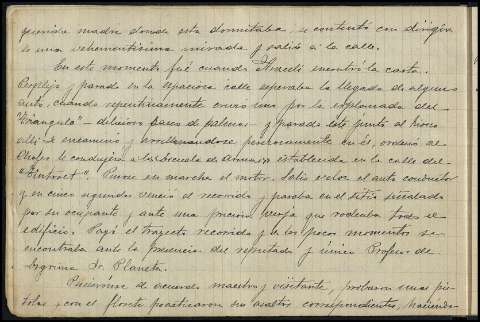 querida madre donde esta dormitaba, se contentó con dirigir
le una vehementísima mirada y salió á la calle.
En este momento fué cuando Araceli encontró la carta.
Perplejo y parado en la espaciosa calle esperaba la llegada de algun
auto, cuando repentinamente cruzó uno por la explanada del
"Triángulo" - delicioso paseo de palmeras - y parado este junto al
allí se encaminó y posesionándose en él, ordenó al
Chofer le condujera á la Escuela de Armas establecida en la calle del
". Púsose en marcha el motor. Salió veloz el auto conductor
y en cinco segundos venció el recorrido y paraba en el sitio señalado
por su ocupante y ante una preciosa verja que rodeaba todo el
edificio. Pagó el trayecto recorrido y á los pocos momentos se
encontraba ante la presencia del reputado y único Profesor de
Esgrima Sr. Planeta.
Pusiéronse de acuerdo maestro y visitante, probaron unas pis
tolas y con el florete practicaron sus asaltos correspondientes, haciendo